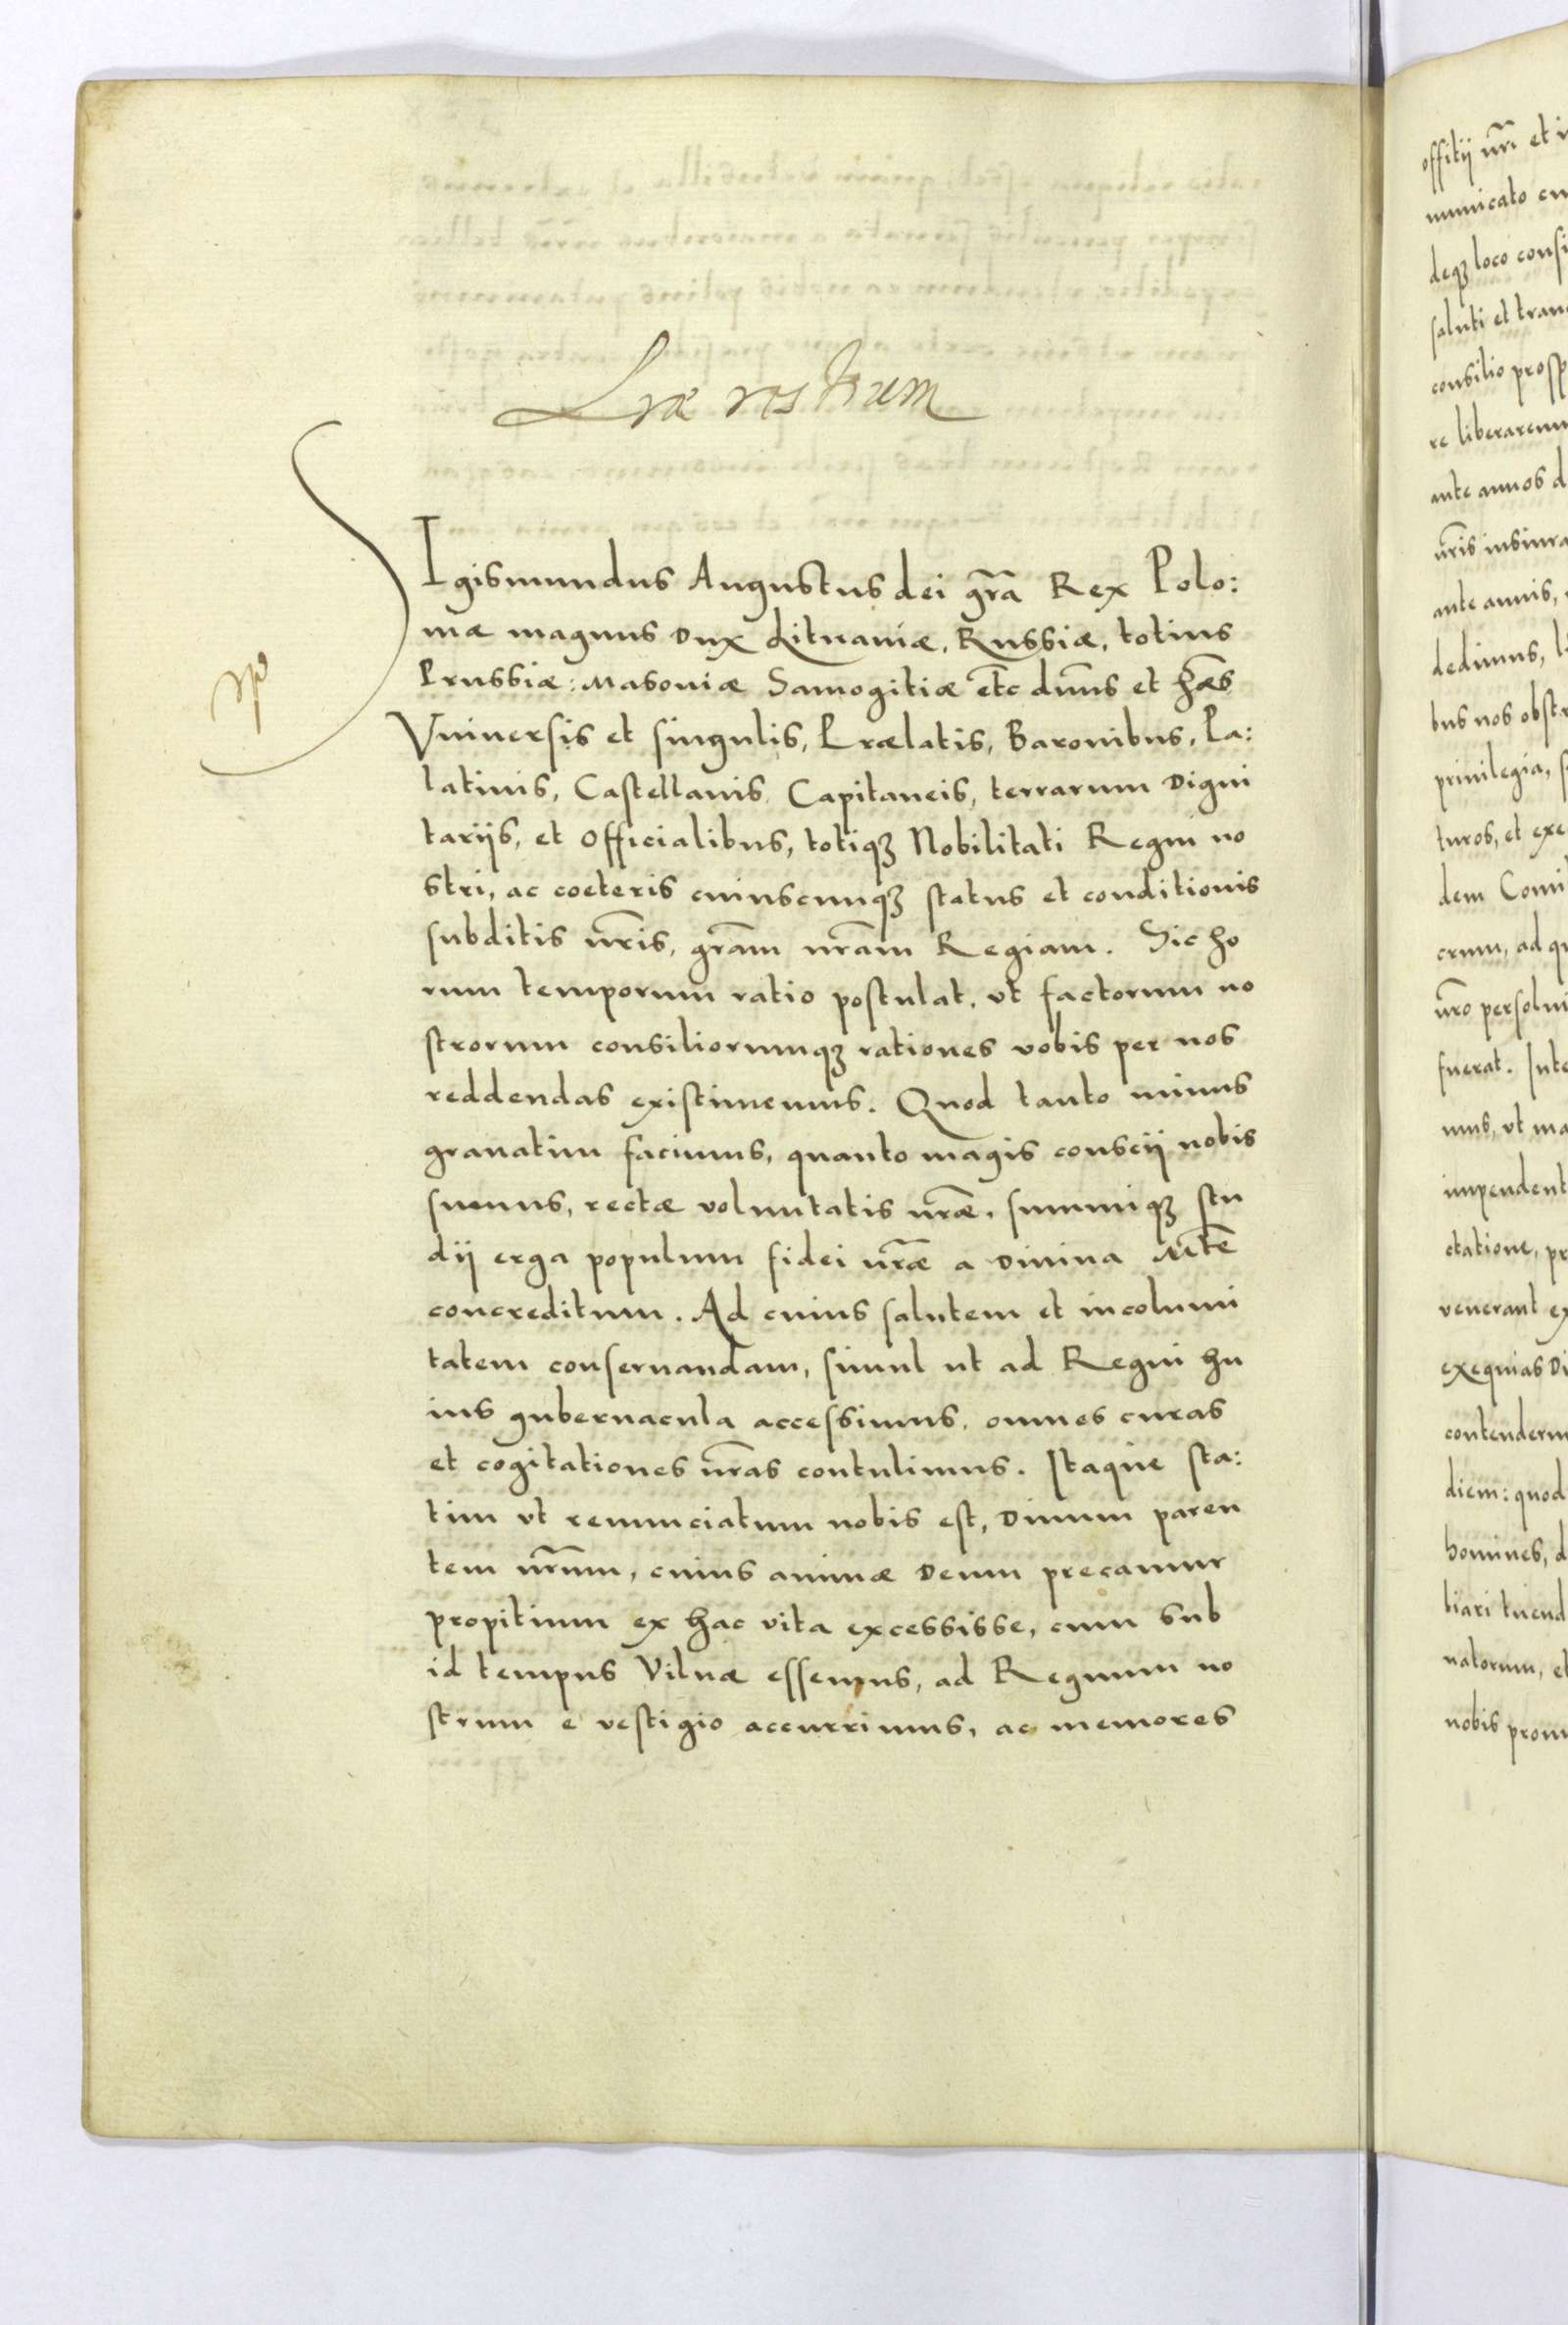 Lræ restium
SIgismundus Augustus dei gr̃a Rex Polo:
niæ magnus Dux Lituaniæ, Russiæ, totius
Prussiæ: Masoviæ Samogitiæ etc̃ dñus et hæ̃s
Vniuersis et singulis, Prælatis, Baronibus, Pa:
latinis, Castellanis Capitaneis, terrarum Digni
tarijs, et officialibus, totiqȝ Nobilitati Regni no
stri, ac coeteris cuiuscunqȝ status et conditionis
subditis nr̃is, gr̃am nr̃am Regiam. Sic ho
rum temporum ratio postulat, vt factorum no
strorum consiliorumqȝ rationes vobis per nos
reddendas existimemus. Quod tanto minus
grauatim facimus, quanto magis conscij nobis
sumus, rectæ voluntatis nr̃æ, summiqȝ stu
dij erga populum fidei nr̃æ a Diuina Mte͂
concreditum. Ad cuius salutem et incolumi
tatem conseruandam, simul ut ad Regni hu
ius gubernacula accessimus, omnes curas
et cogitationes nr̃as contulimus. Itaque sta:
tim vt renunciatum nobis est, Diuum paren
tem nr̃um, cuius animæ Deum precamur
propitium ex hac vita excessisse, cum sub
id tempus Vilnæ essemus, ad Regnum no
strum e vestigio accurrimus, ac memores
offitij nr̃i et
municato
deqȝ loco consi
saluti et tran
consilio prosp
re liberaremu
ante annos d
nr̃is insinra
ante annis,
dedimus,
bus nos obst
priuilegia,
turos, et exe
dem Comi
crum, ad qu
nr̃o persolui
fuerat. Inte
mus, vt ma
impendent
ctatione, pr
venerant ex
exequias Di
contenderu
diem: quod
homines, d
liari tuend
natorum, et
nobis prom